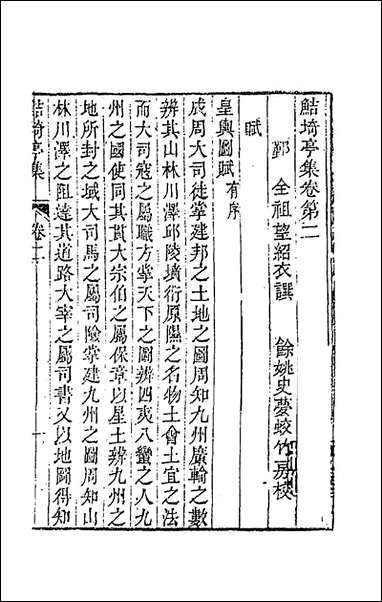 鮚埼亭集卷第二
鄞 全祖望紹衣譔 餘姚史夢蛟竹房校
賦
皇輿圖賦有序
成周大司徒掌建邦之土地之圖周知九州廣輪之數
辨其山林川澤邱陵墳衍原隰之名物土會土宜之法
而大司寇之屬職方掌天下之圖辨四夷八蠻之人九
州之國使同其貫大宗伯之屬保章以星土辨九州之
地所封之域大司馬之屬司險掌建九州之圖周知山
林川澤之阻達其道路大宰之屬司書又以地圖得知
鮚埼亭集 卷二 一